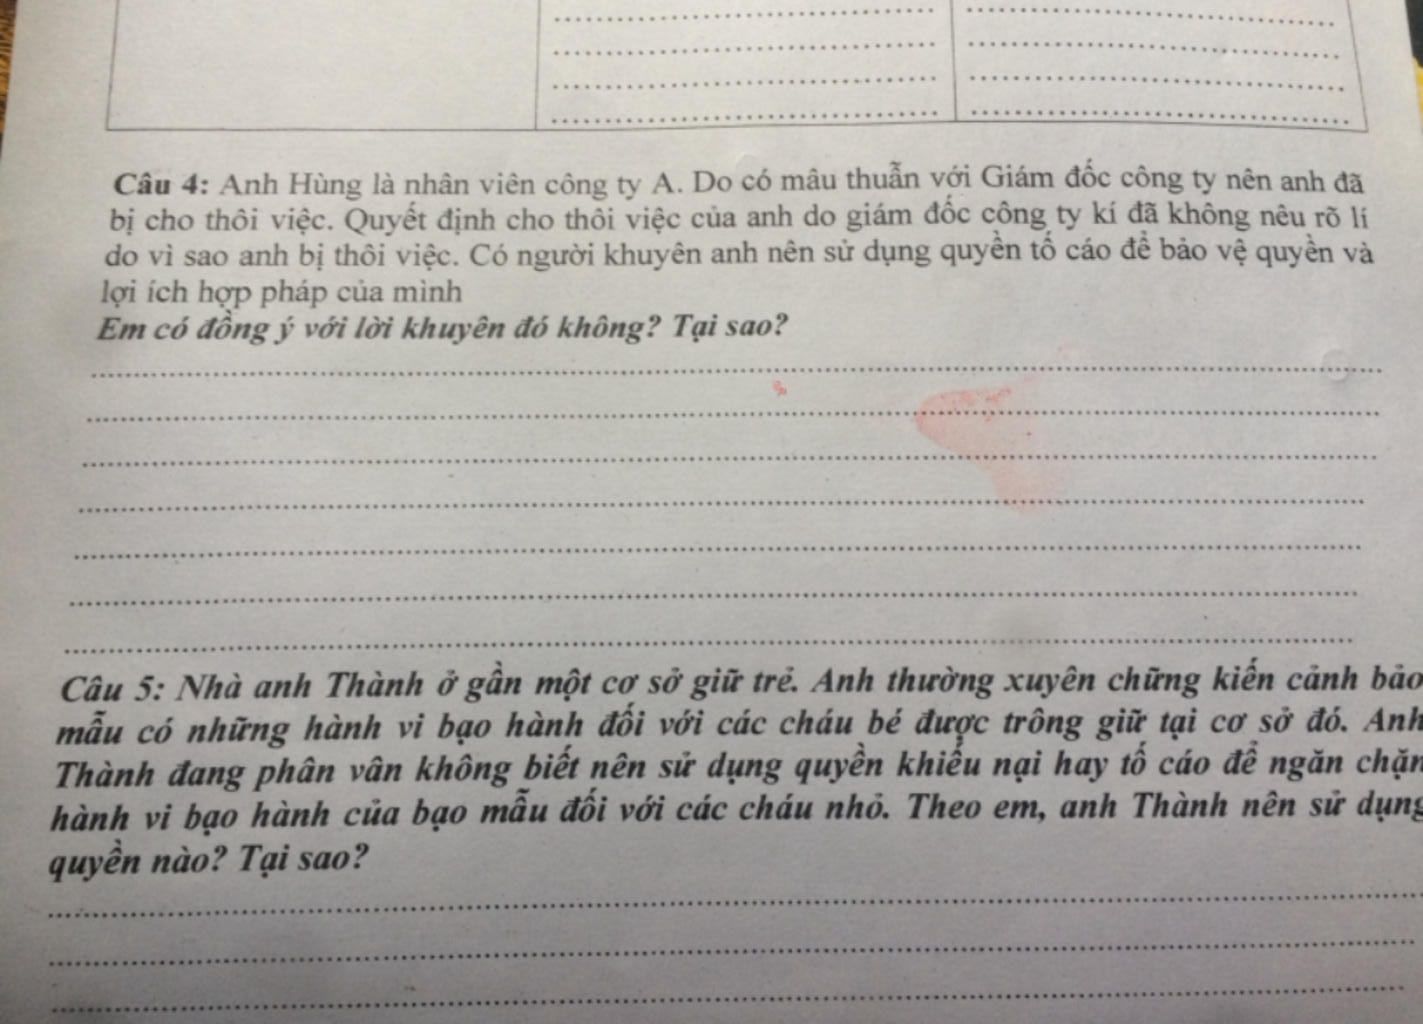 Câu 4: Anh Hùng là nhân viên công ty A. Do có mâu thuẫn với Giám đốc công ty nên anh đã
bị cho thôi việc. Quyết định cho thôi việc của anh do giám đốc công ty kí đã không nêu rõ lí
do vì sao anh bị thôi việc. Có người khuyên anh nên sử dụng quyền tố cáo để bảo vệ quyền và
lợi ích hợp pháp của mình
Em có đồng ý với lời khuyên đó không? Tại sao?
Câu 5: Nhà anh Thành ở gần một cơ sở giữ trẻ. Anh thường xuyên chứng kiến cảnh bảo
mẫu có những hành vi bạo hành đối với các cháu bé được trông giữ tại cơ sở đó. Anh
Thành đang phân vân không biết nên sử dụng quyền khiếu nại hay tố cáo để ngăn chặn
hành vi bạo hành của bạo mẫu đối với các cháu nhỏ. Theo em, anh Thành nên sử dụng
quyền nào? Tại sao?